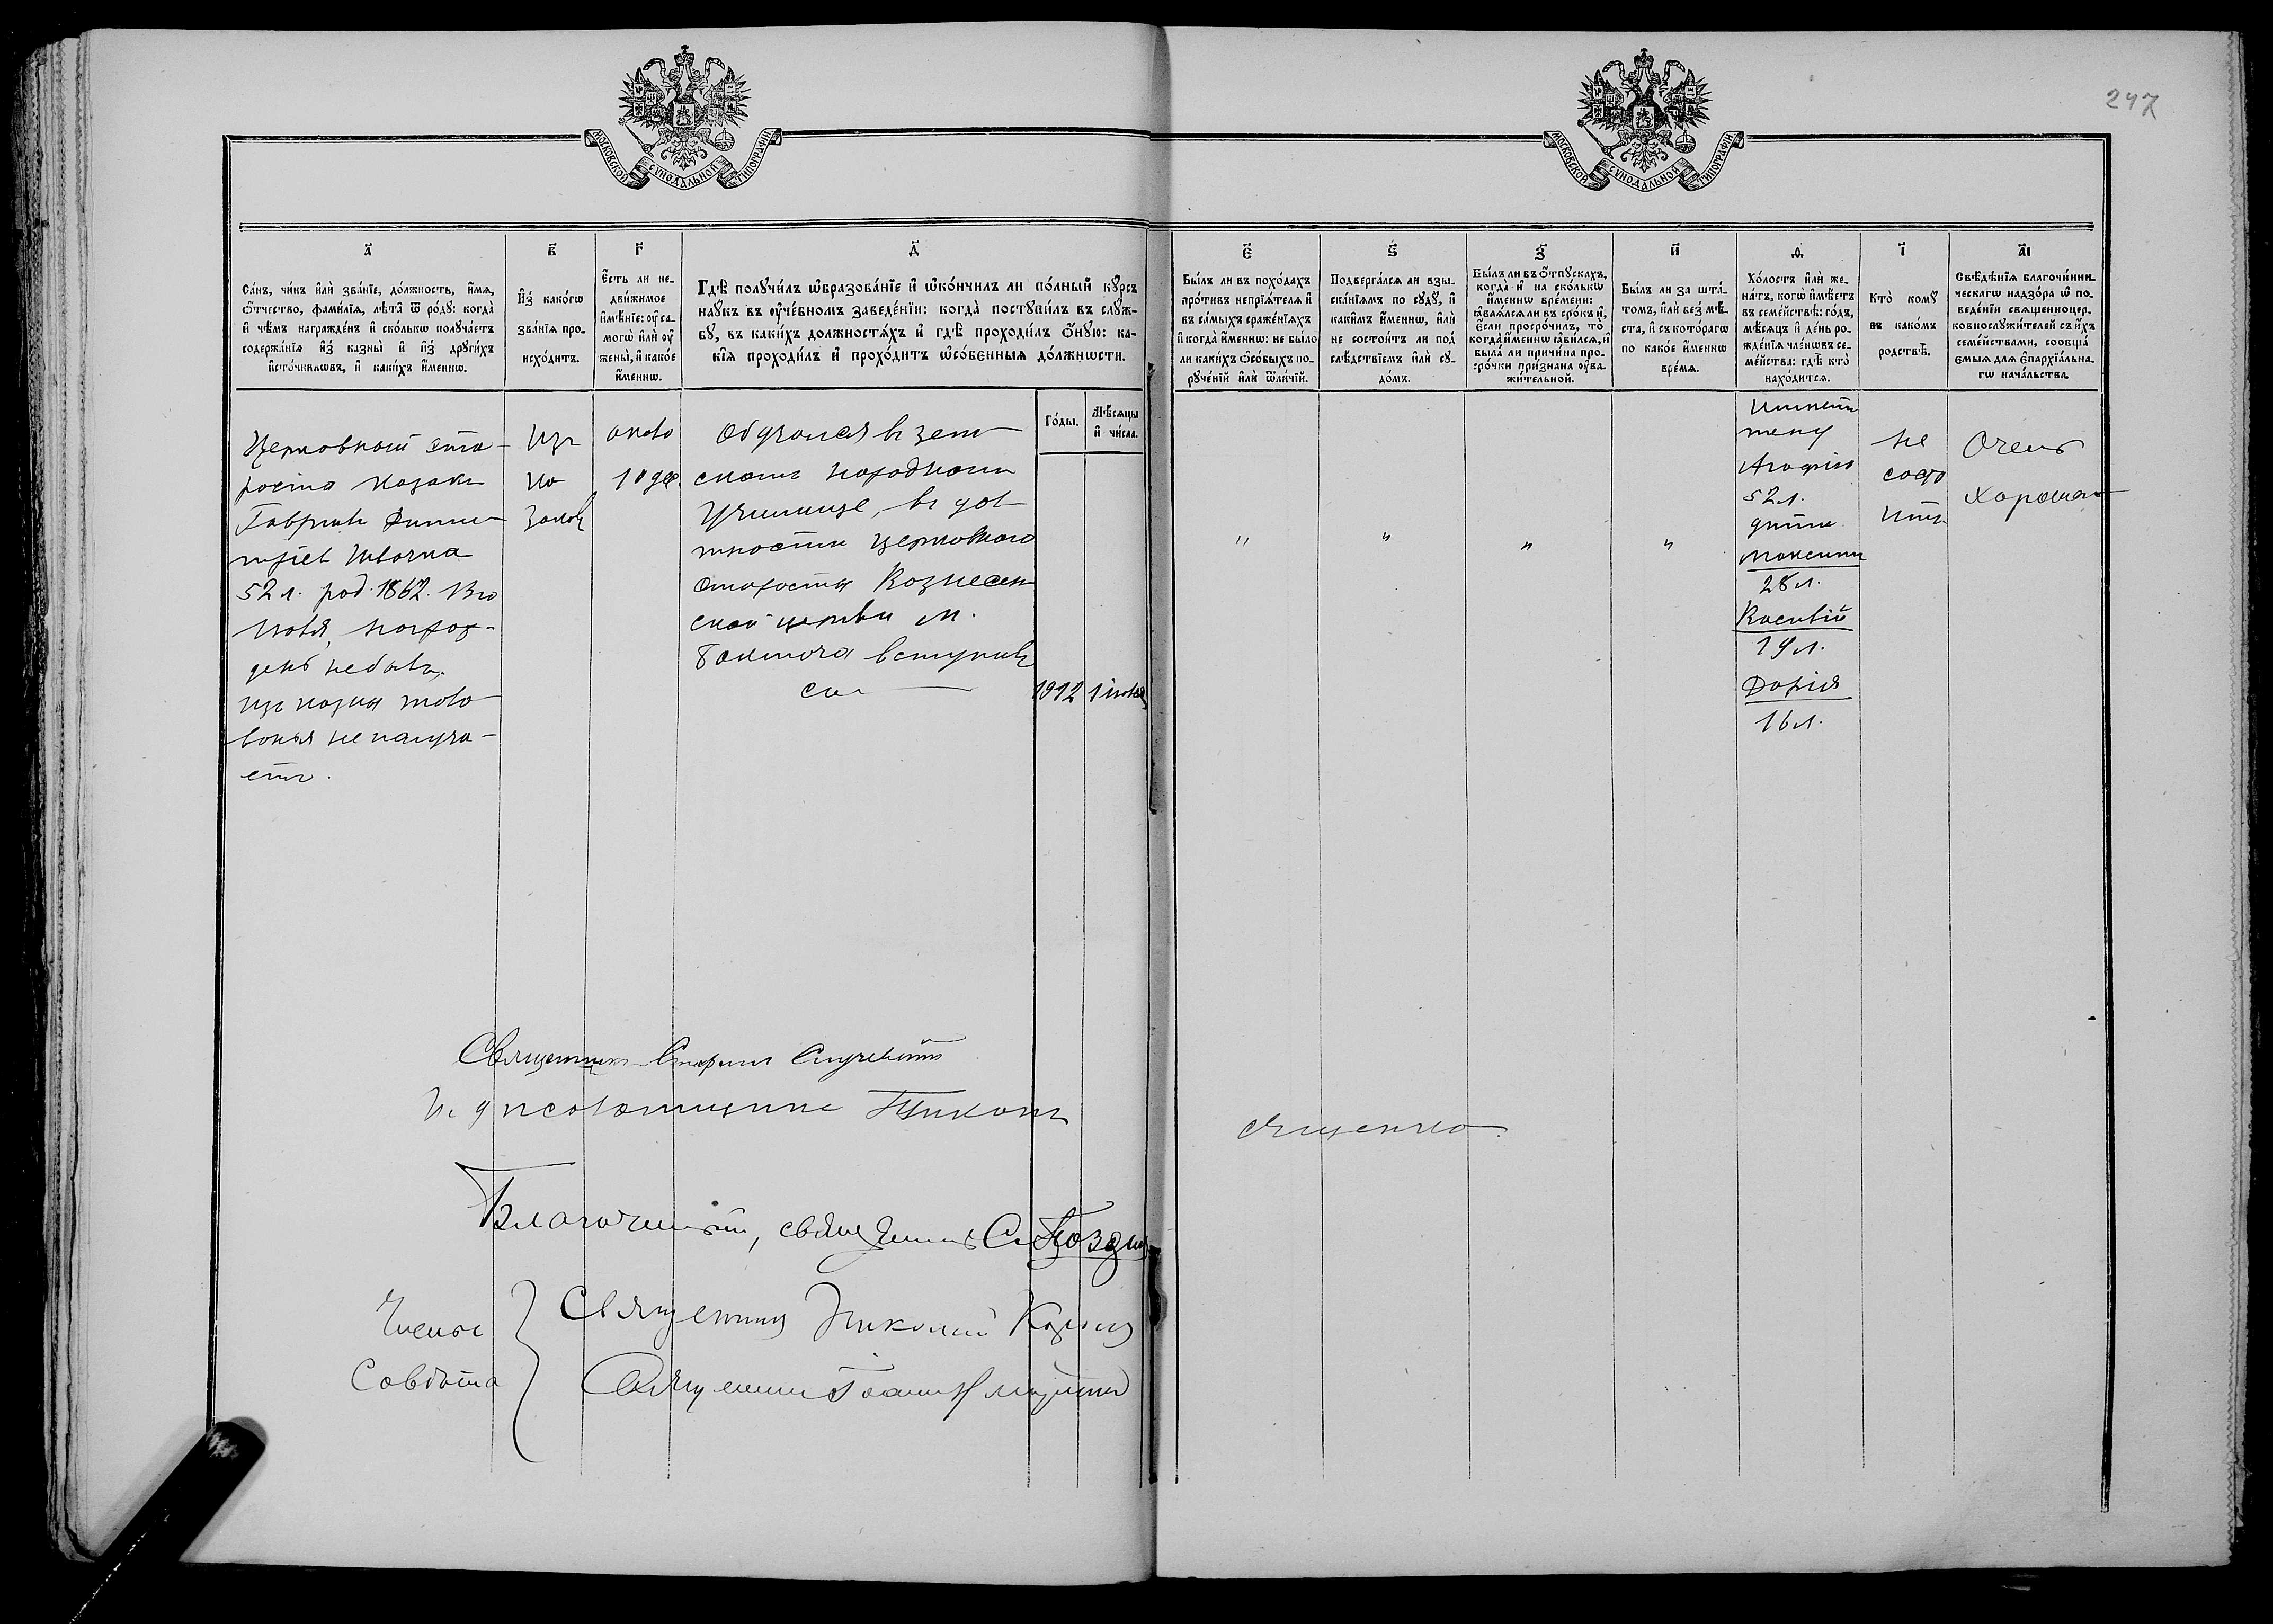 247
МОСКОВСКОЙ СУНОДАЛЬНОЙ ТИПОГРАФІИ
МОСКОВСКОЙ СУНОДАЛЬНОЙ ТИПОГРАФІИ
а҃
Са́нъ, чи́нъ и҆лѝ зва́нїе, до́лжность, и҆́мѧ,
ѻ҆́тчество, фами́лїѧ, лѣ́та ѿ ро́дꙋ: когда̀
и҆ чѣ́мъ награжде́нъ и҆ ско́лькѡ полꙋча́етъ
содержа́нїѧ и҆з̾ казны̀ и҆ и҆з̾ дрꙋги́хъ
и҆сто́чникѡвъ, и҆ каки́хъ и҆́меннѡ.
в҃
И҆з̾ како́гѡ
зва́нїѧ про-
исхо́дитъ.
г҃
Е҆́сть ли не-
дви́жимое
и҆мѣ́нїе: ᲂу҆ са-
могѡ̀ и҆лѝ ᲂу҆
жены̀, и҆ како́е
и҆́меннѡ.
д҃
Гдѣ̀ полꙋчи́лъ ѡ҆бразова́нїе и҆ ѡ҆ко́нчилъ ли по́лный кꙋ́рсъ
наꙋ́къ въ ᲂу҆че́бномъ заведе́нїи: когда̀ постꙋпи́лъ въ слꙋ́ж-
бꙋ, въ каки́хъ должностѧ́хъ и҆ гдѣ̀ проходи́лъ ѻ҆́нꙋю: ка-
кі̑ѧ проходи́лъ и҆ прохо́дитъ ѡ҆со́бенныѧ до́лжнѡсти.
Го́ды.
Мѣ́сѧцы
и҆ чи́сла.
є҃
Бы́лъ ли въ похо́дахъ
про́тивъ непрїѧ́телѧ и҆
въ са́мыхъ сраже́нїѧхъ
и҆ когда̀ и҆́меннѡ: не бы́ло
ли каки́хъ ѻ҆со́быхъ по-
рꙋче́нїй и҆лѝ ѿли́чїй.
ѕ҃
Подверга́лсѧ ли взы-
ска́нїѧмъ по сꙋдꙋ̀, и҆
каки̑мъ и҆́меннѡ, и҆лѝ
не состои́тъ ли под̾
слѣ́дствїемъ и҆лѝ сꙋ-
до́мъ.
з҃
Бы́лъ ли въ ѻ҆́тпꙋскахъ,
когда̀ и҆ на ско́лькѡ
и҆́меннѡ вре́мени:
ꙗ҆влѧ́лсѧ ли въ сро́къ и҆,
є҆́сли просро́чилъ, то̀
когда̀ и҆́меннѡ ꙗ҆ви́лсѧ, и҆
была̀ ли причи́на про-
сро́чки при́знана ᲂу҆ва-
жи́тельной.
и҃
Бы́лъ ли за шта́-
томъ, и҆лѝ без̾ мѣ́-
ста, и҆ съ кото́рагѡ
по како́е и҆́меннѡ
вре́мѧ.
ѳ҃
Хо́лостъ и҆лѝ же-
на́тъ, когѡ̀ и҆мѣ́етъ
въ семе́йствѣ: го́дъ,
мѣ́сѧцъ и҆ де́нь ро-
жде́нїѧ чле́нѡвъ се-
ме́йства: гдѣ̀ кто̀
нахо́дитсѧ.
і҃
Кто̀ комꙋ̀
въ како́мъ
родствѣ̀.
а҃і
Свѣ́дѣнїѧ благочи́нни-
ческагѡ надзо́ра ѡ҆ по-
веде́нїи свѧщенноцер-
ковнослꙋжи́телей съ и҆́хъ
семе́йствами, соѻбща́-
ємыѧ для є҆пархїа́льна-
гѡ нача́льства.
Церковный ста-
роста казакъ
Гавриилъ Дими-
трiев
52 л. род. 1862.
награж-
денъ небылъ.
изъ казны жало-
ванья не получа-
етъ.
Изъ
ка
заковъ
около
10 дес.
Обучался въ зем-
скомъ народномъ
Училище, въ дол
жности церковнаго
старосты Вознесен
ской церкви м.
вступилъ
1912
имеетъ
жену
52 л.
дети
Максимъ
28 л.
Василій
19 л.
Дарія
16 л.
не
состо
итъ
Очень
хорошаго
" " " "
Священникъ
И. д. псаломщика Тихонъ
Благочинный, священникъ С.
Члены
Совѣта
Священникъ Николай
Священникъ Іоаннъ